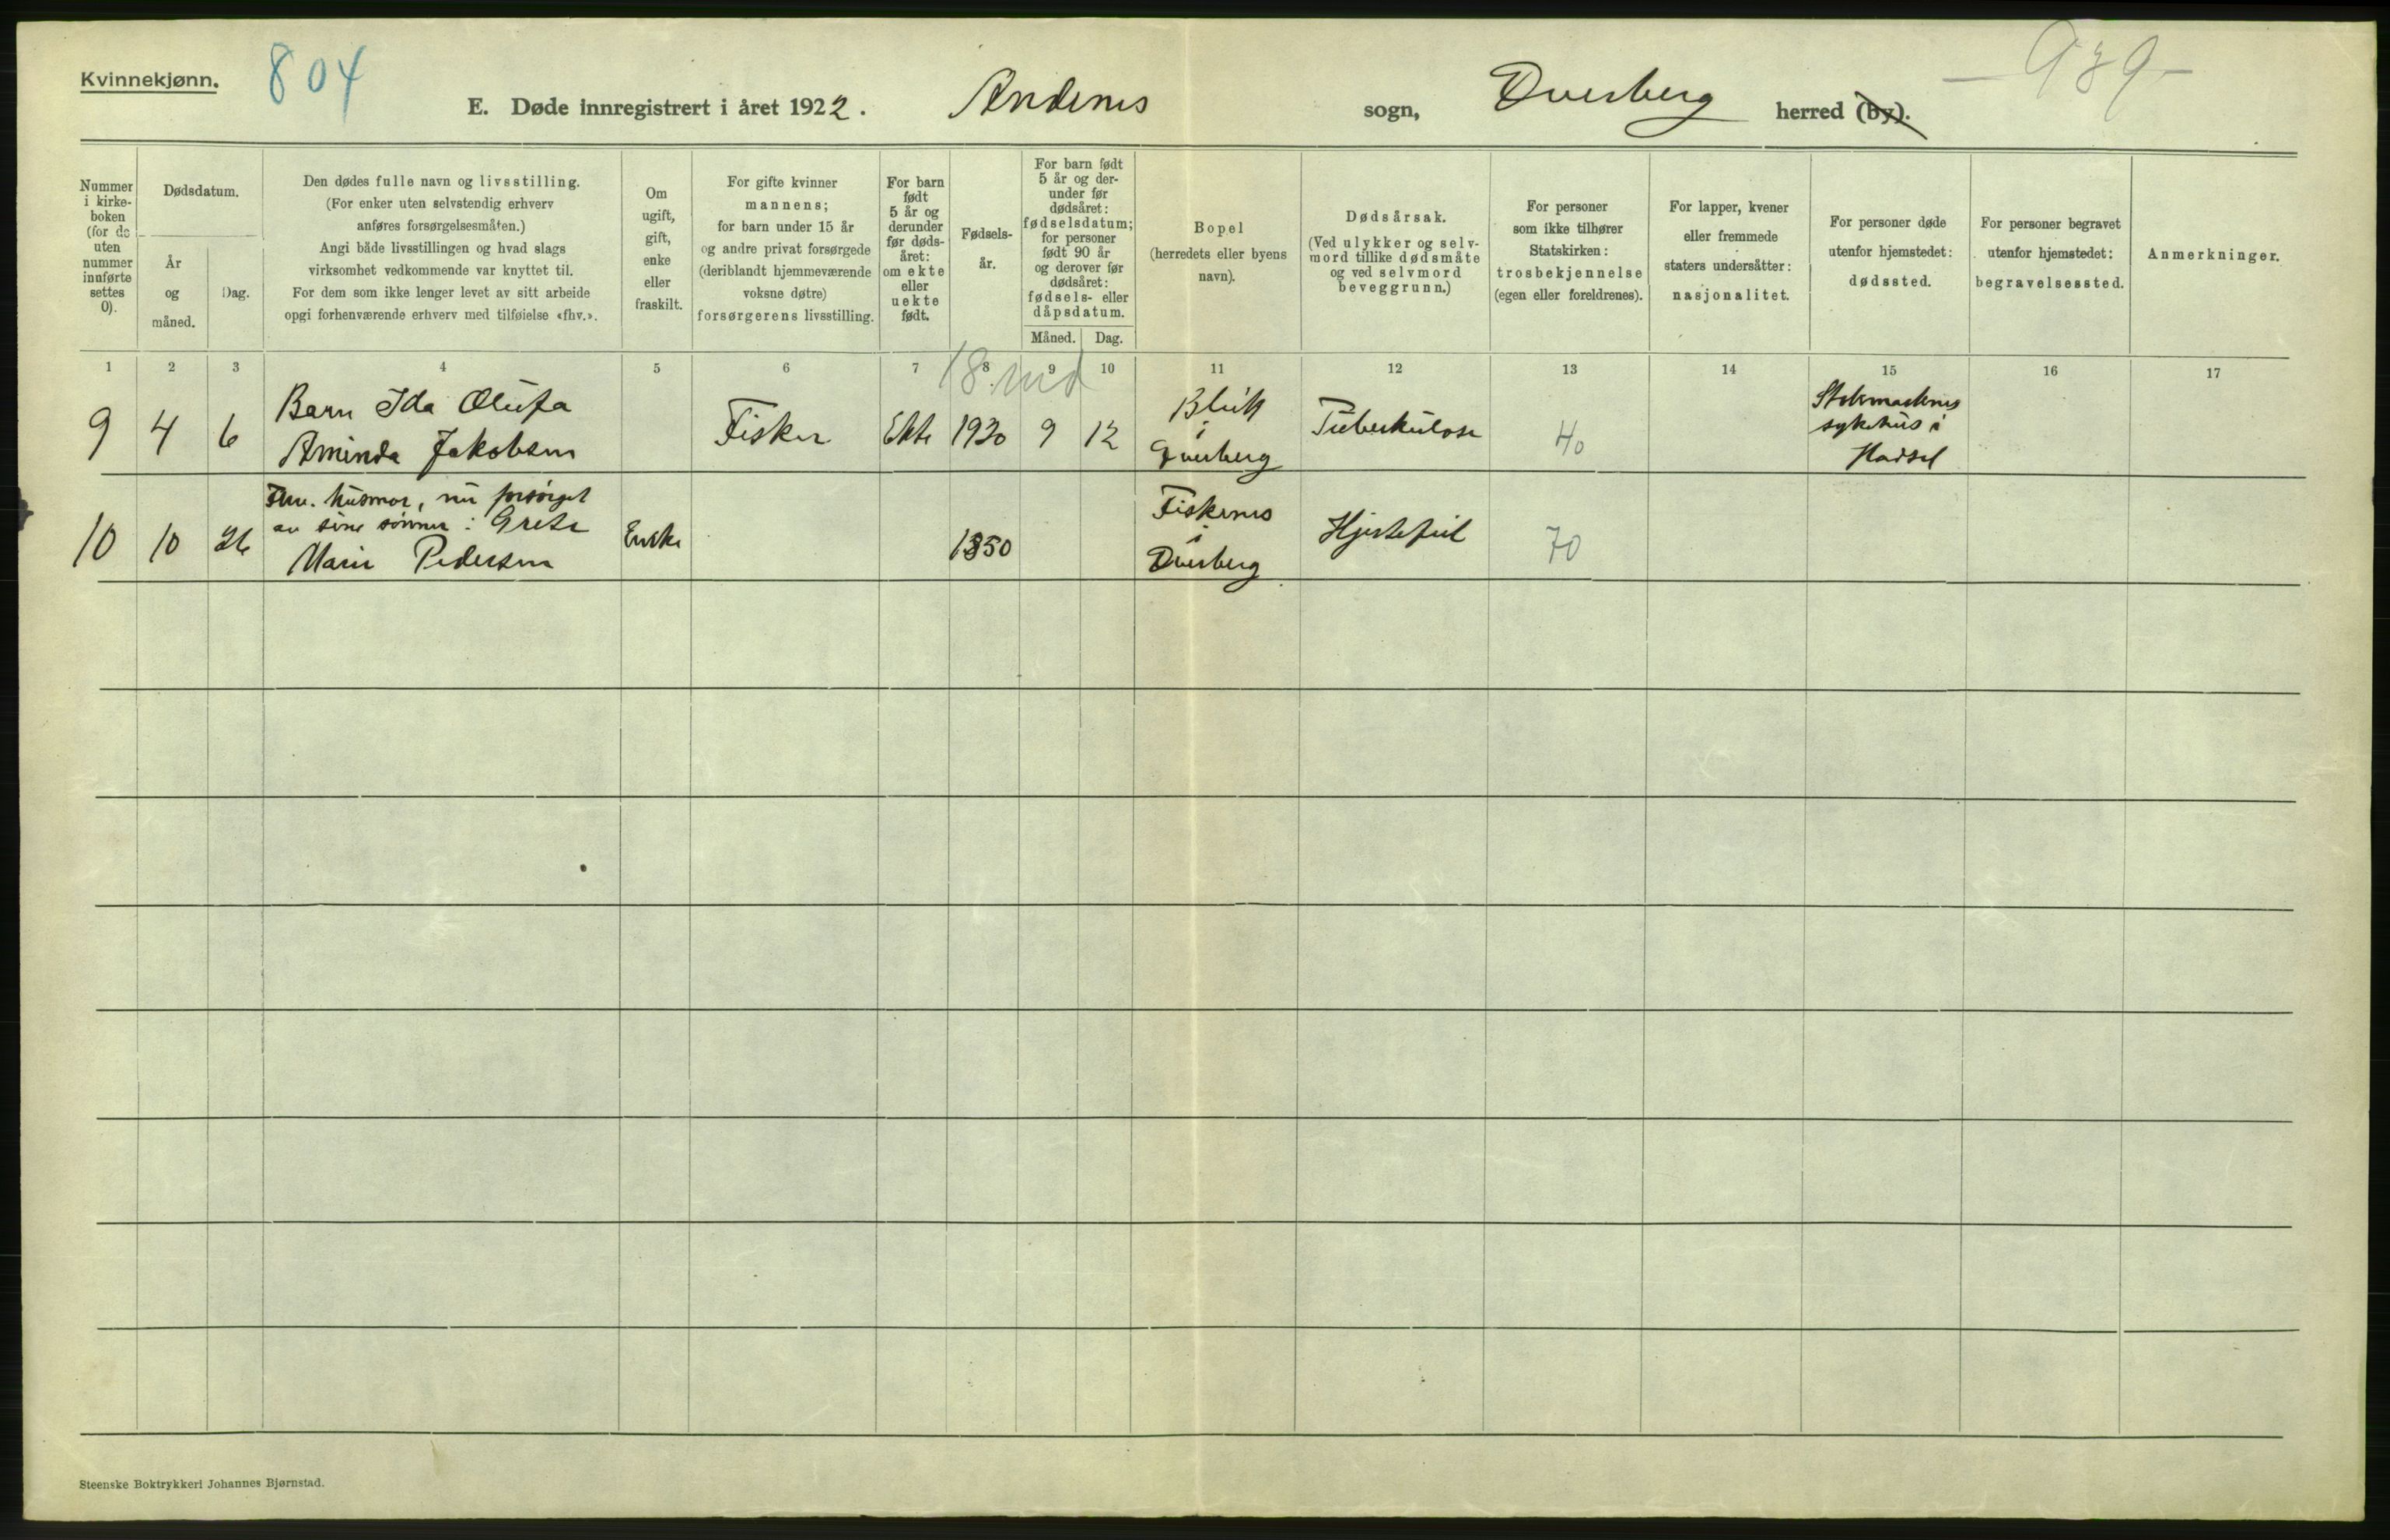 Kvinnekjønn.
804
E. Døde innregistrert i året 1922. Andenes sogn, Dverberg herred (by).
939
Nummer i kirke-boken (for de uten nummer innførte settes 0).
Dødsdatum.
År og måned.
Dag.
Den dødes fulle navn og livsstilling.
(For enker uten selvstendig erhverv
anføres forsørgelsesmåten.)
Angi både livsstillingen og hvad slags
virksomhet vedkommende var knyttet til.
For dem som ikke lenger levet av sitt arbeide
opgi forhenværende erhverv med tilføielse «fhv.».
Om
ugift,
gift,
enke
eller
fraskilt.
For gifte kvinner
mannens;
for barn under 15 år
og andre privat forsørgede
(deriblandt hjemmeværende
voksne døtre)
forsørgerens livsstilling.
For barn
født
5 år og
derunder
før døds-
året:
om ekte
eller
uekte
født.
Fødsels-
år.
For barn født
5 år og der-
under før
dødsåret:
fødselsdatum;
for personer
født 90 år
og derover før
dødsåret:
fødsels- eller
dåpsdatum.
Måned. Dag.
Bopel
(herredets eller byens
navn).
Dødsårsak.
(Ved ulykker og selv-
mord tillike dødsmåte
og ved selvmord
beveggrunn.)
For personer
som ikke tilhører
Statskirken:
trosbekjennelse
(egen eller foreldrenes).
For lapper, kvener
eller fremmede
staters undersåtter:
nasjonalitet.
For personer døde
utenfor hjemstedet:
dødssted.
For personer begravet
utenfor hjemstedet:
begravelsessted.
Anmerkninger.
1 2 3 4 5 6 7 8 9 10 11 12 13 14 15 16 17
18 md
9 4 6
Barn Ida Olufa
Aminda Jakobsen
Fisker Ekte 1920 9 12
Bleik
i
Dverberg
Tuberkulose
40
Stokmarknes
sykehus i
Hadsel
10 10 26
Fhv. husmor, nu forsørget
av sine sønner: Grete
Marie Pedersen
Enke
1850
Fiskenes
i
Dverberg
Hjertefeil
70
Steenske Boktrykkeri Johannes Bjørnstad.